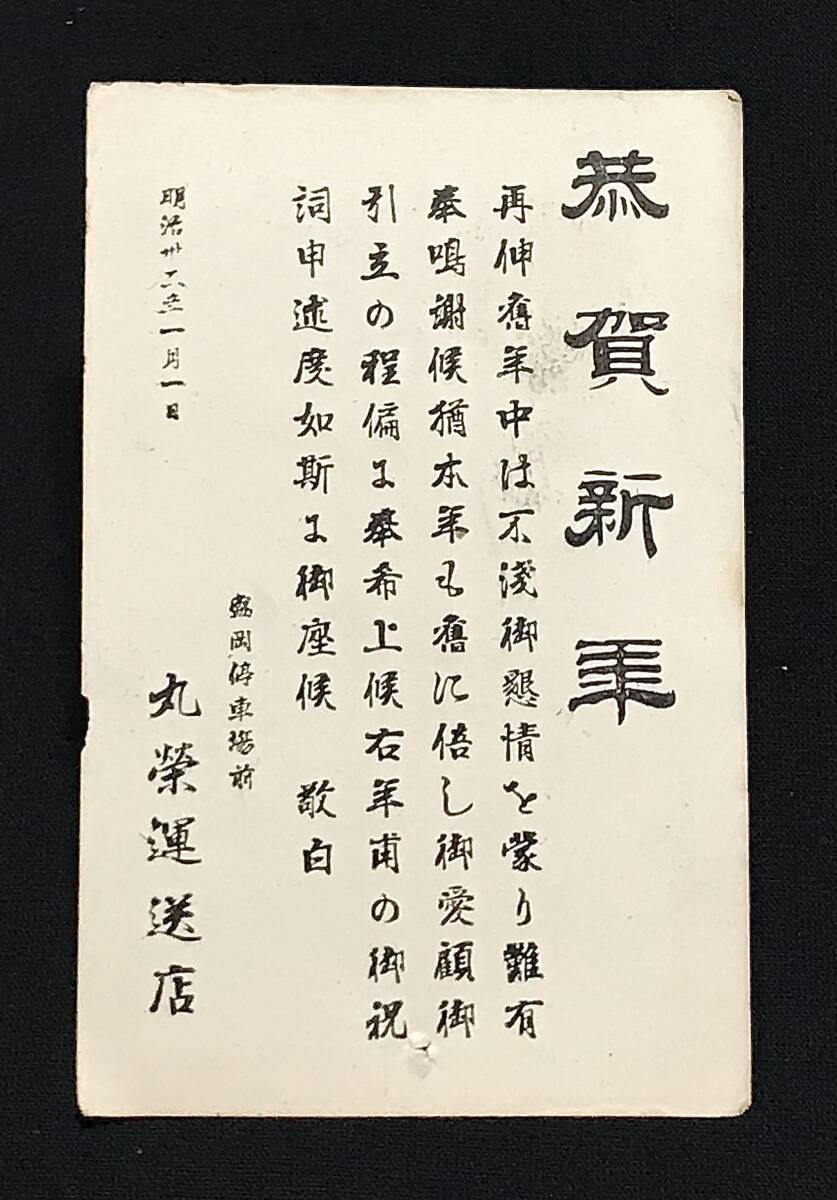 恭賀新年
再伸舊年中は不淺御懇情を蒙り難有
奉鳴謝候猶本年も舊に倍し御愛顧御
引立の程偏に奉希上候右年甫の御祝
詞申述度如斯に御座候 敬白
明治卅六年一月一日
盛岡停車場前
丸榮運送店